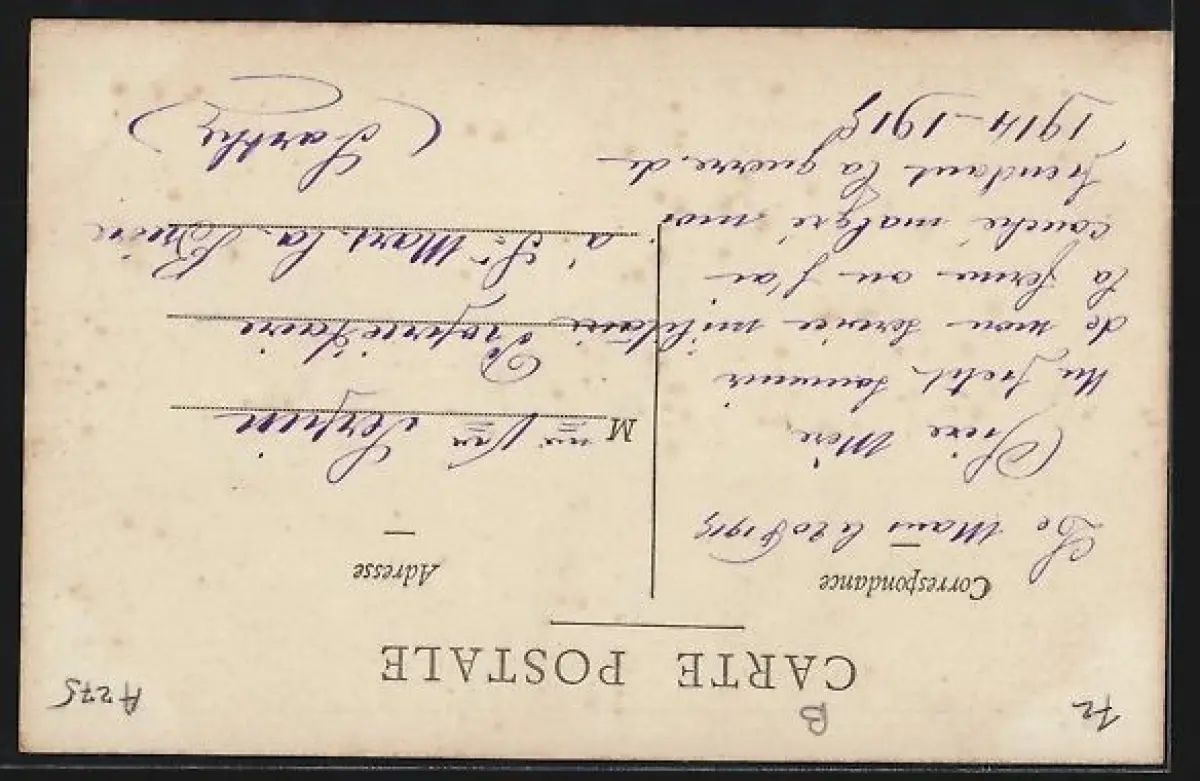 CARTE POSTALE
B
72
A 275
Correspondance
Le Mans le 20 8 1915
Chère Mère
Un petit souvenir
de mon service militaire
la ferme ou j'ai
couché malgré moi
pendant la guerre de
1914-1915
Adresse
M me Vve Serpin
Propriétaire
à St Mars la Brière
(Sarthe)